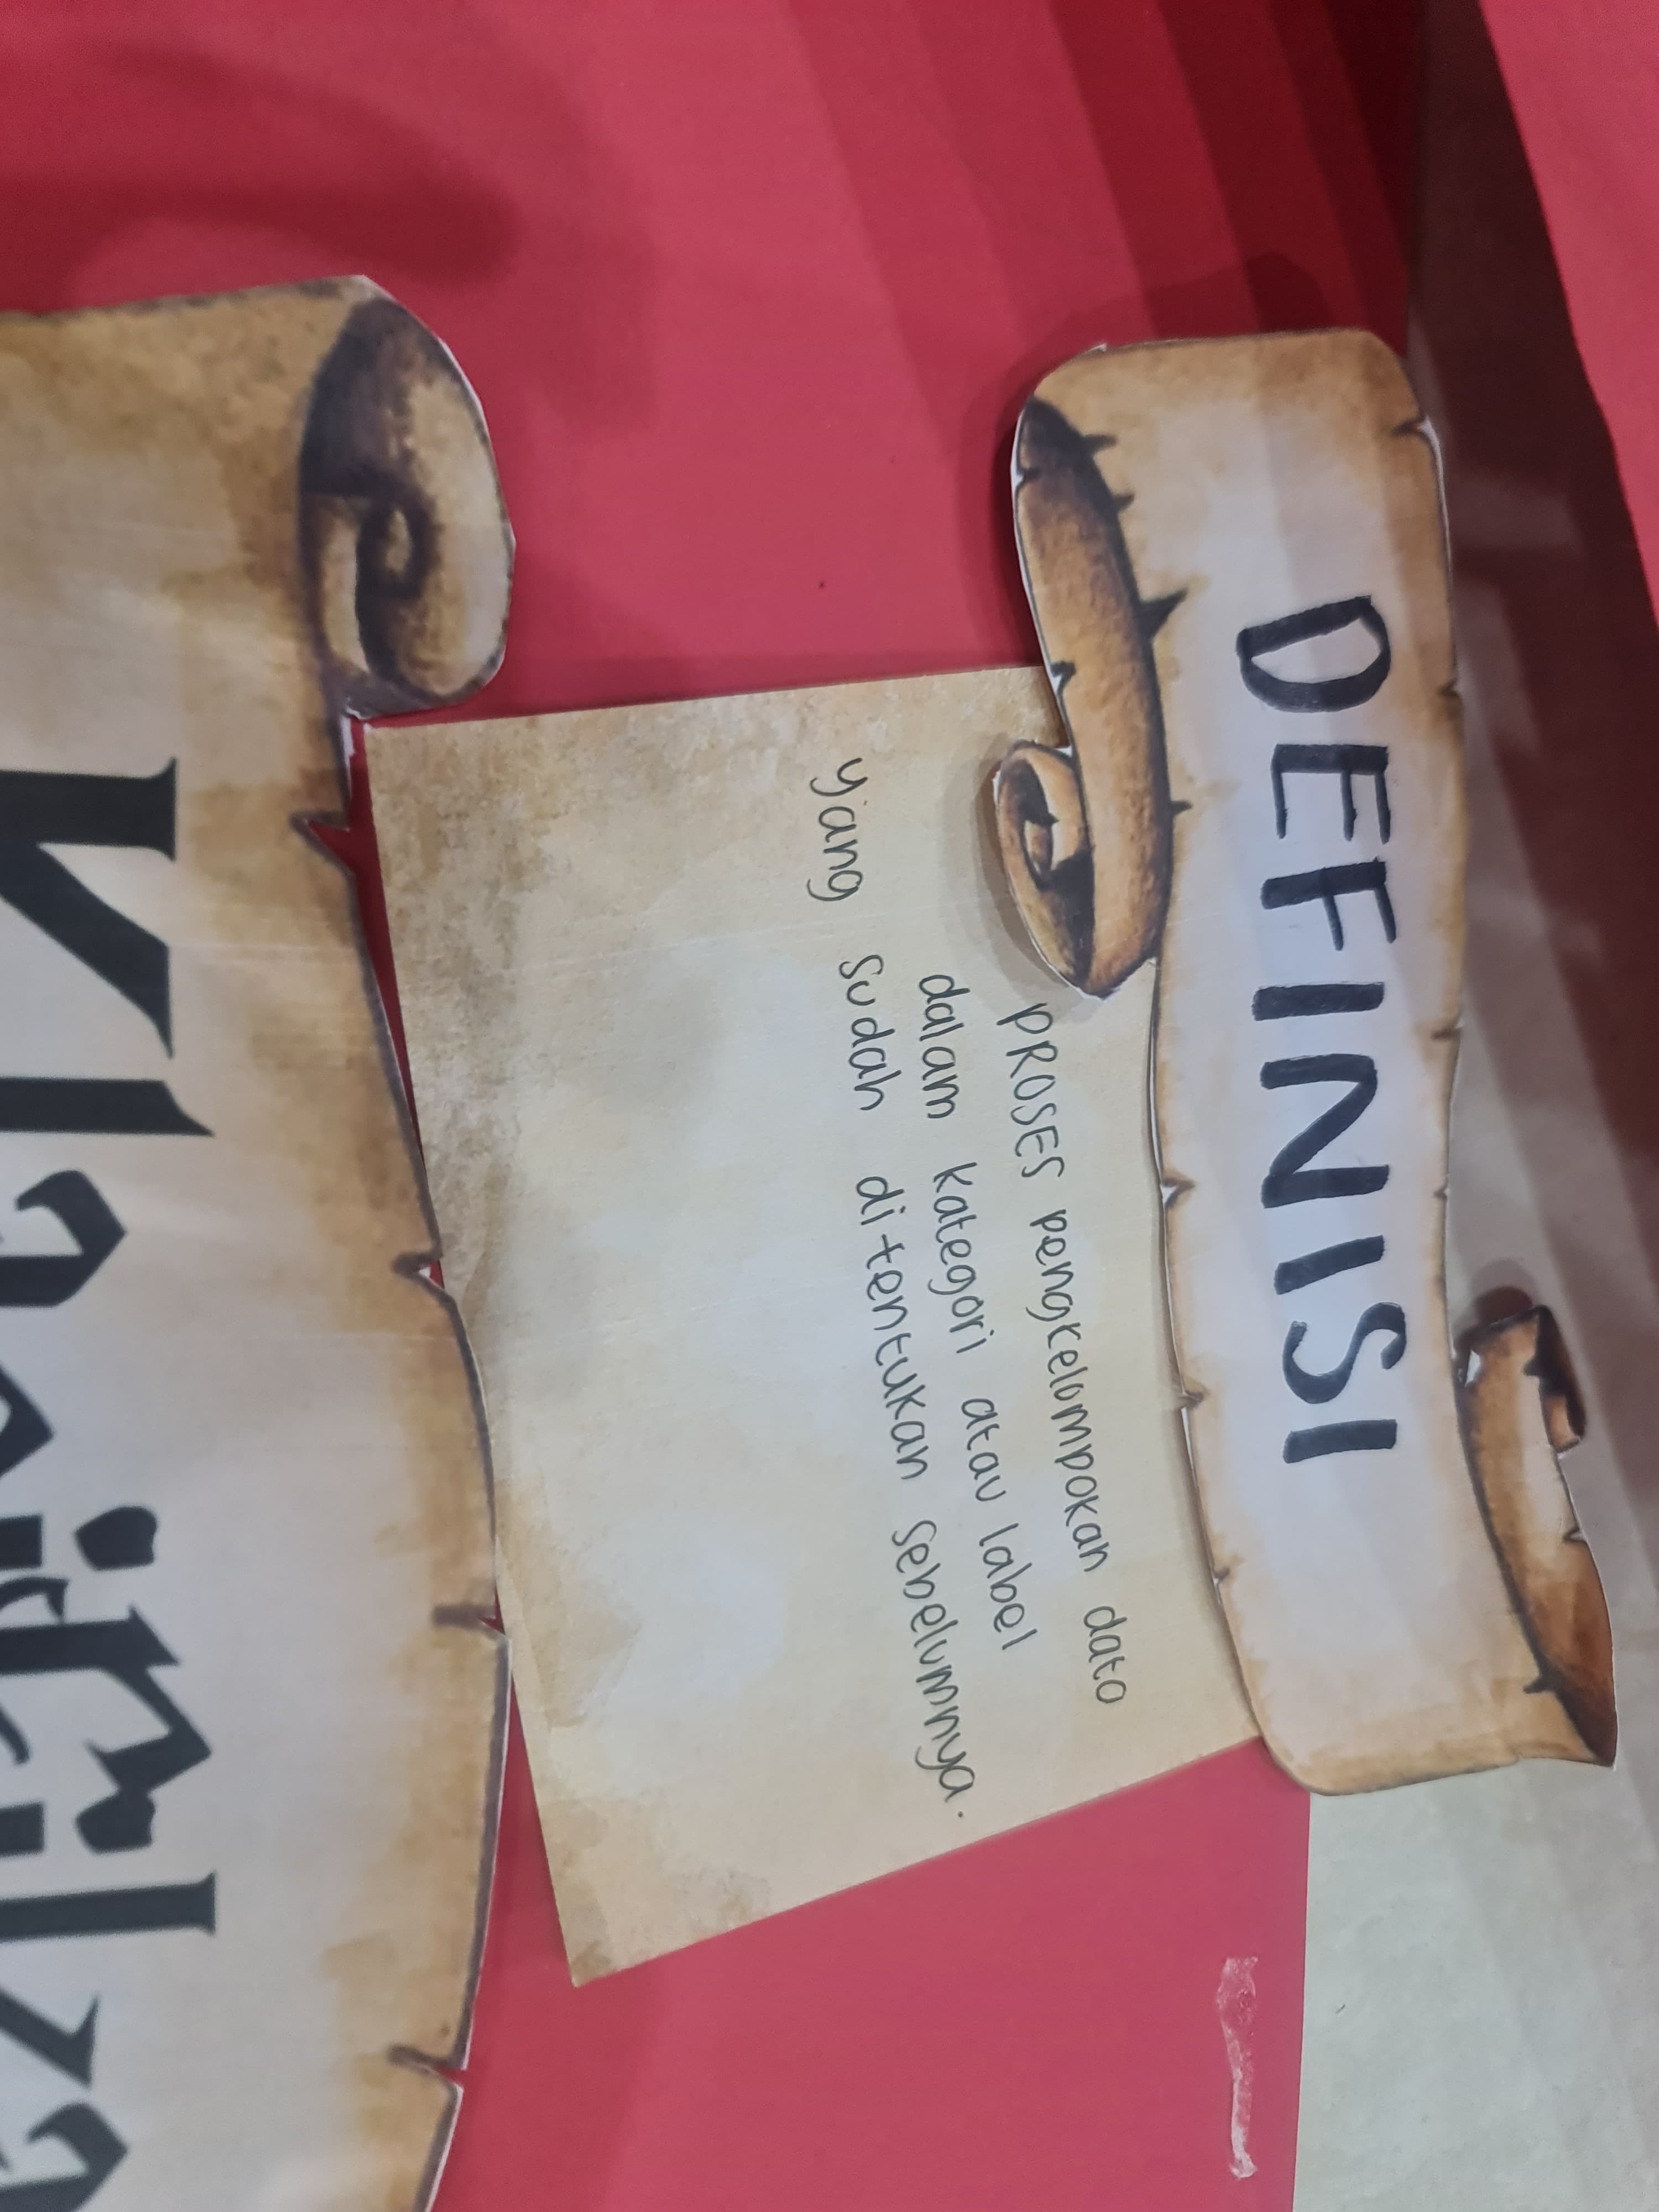 DEFINISI
PROSES pengkelompokan data
dalam kategori atau label
yang sudah ditentukan sebelumnya.